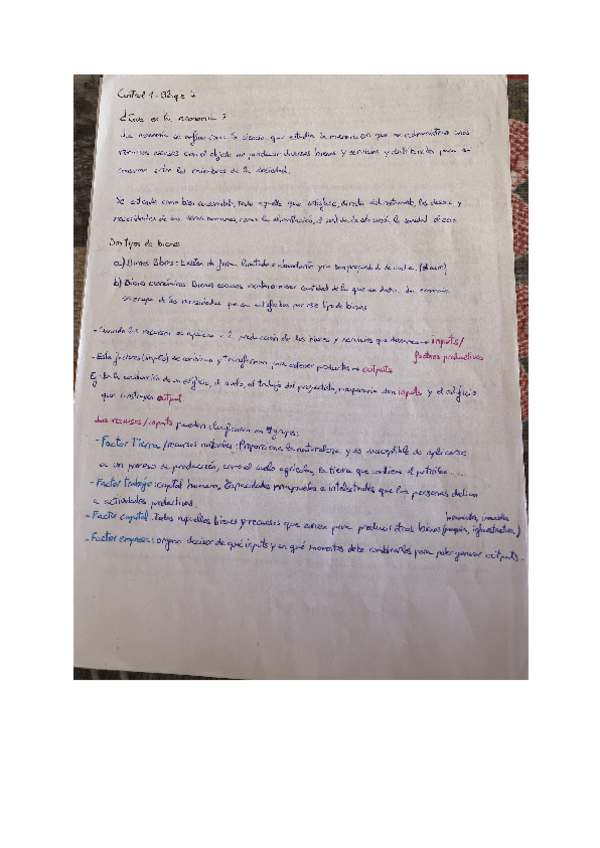 Control 1 - Bloque 2
¿Que es la economía?
La economía se define como la ciencia que estudia la manera en que se administran unos
recursos escasos con el objeto de producir diversos bienes y servicios y distribuirlos para su
consumo entre los miembros de la sociedad.
Se entiende como bien económico, todo aquello que satisface, directa o indirectamente, los deseos y
necesidades de los seres humanos, como la alimentación, el vestido, la educación, la sanidad, el ocio
Son tipos de bienes
a) Bienes libres: Existen de forma ilimitada o abundante y no son propiedad de nadie. (el aire)
b) Bienes económicos: Bienes escasos cantidad de la que se La economía
se ocupa de las necesidades que son satisfechas por este tipo de bienes
- Cuando los recursos se aplican a la producción de los bienes y servicios que → inputs/
factores productivos
- Estos factores (inputs) se combinan y transforman para obtener productos → outputs
Ej: En la construcción de un edificio, el suelo, el trabajo del proyectista, maquinaria son inputs y el edificio
que construyen output.
Los recursos/inputs pueden clasificarse en 4 grupos:
- Factor Tierra/recursos naturales: Proporciona la naturaleza y es susceptible de aplicarse
a un proceso de producción, como el suelo agrícola, la tierra que contiene el petróleo ....
- Factor trabajo: capital humano, capacidades e intelectuales que las personas dedican
a actividades productivas.
- Factor capital: todos aquellos bienes y recursos que sirven para producir otros bienes (maquin, infraestructuras,)
- Factor empresa: organo decisor de qué inputs y en qué momentos debe combinarlos para poder generar outputs.